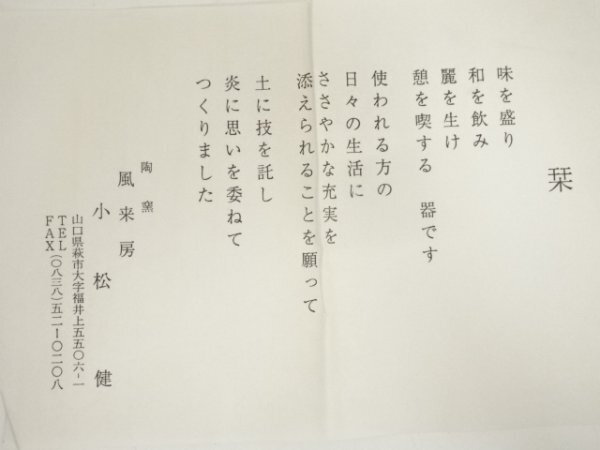 栞
味を盛り
和を飲み
麗を生け
憩を喫する　器です
使われる方の
日々の生活に
ささやかな充実を
添えられることを願って
土に技を託し
炎に思いを委ねて
つくりました
陶窯
風来房
小松　健
山口県萩市大字福井上五五〇六－一
TEL
FAX（〇八三八）五二ー〇二〇八